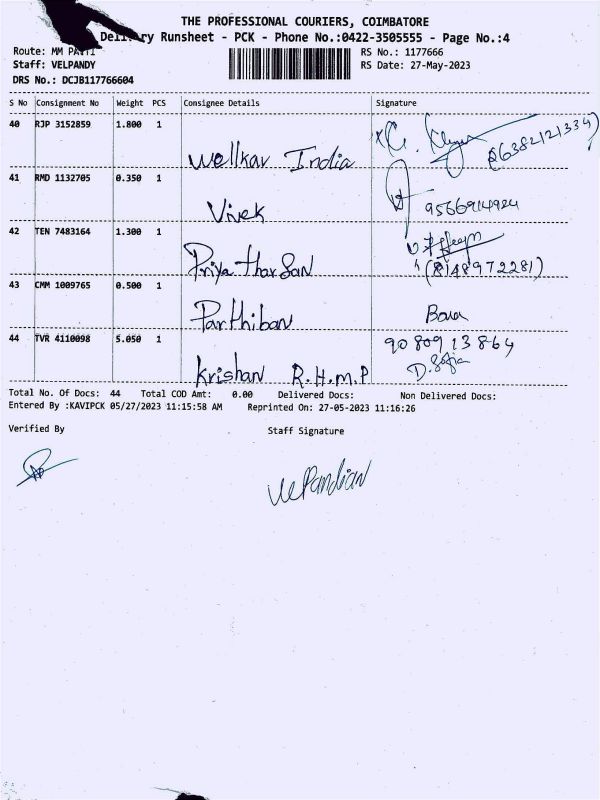 THE PROFESSIONAL COURIERS, COIMBATORE
Delivery Runsheet - PCK - Phone No.:0422-3505555 - Page No.:4
Route: MM RS No.: 1177666
Staff: VELPANDY RS Date: 27-May-2023
DRS No.: DCJB117766604
S No Consignment No Weight PCS Consignee Details Signature
40 RJP 3152859 1.800 1
Wellkav India (6382121334)
41 RMD 1132705 0.350 1
Vivek 9566914924
42 TEN 7483164 1.300 1
Priya tharsan (8148972281)
43 CMM 1009765 0.500 1
Parthiban
44 TVR 4110098 5.050 1 9080913864
Krishan R.H.M.P
Total No. Of Docs: 44 Total COD Amt: 0.00 Delivered Docs: Non Delivered Docs:
Entered By :KAVIPCK 05/27/2023 11:15:58 AM Reprinted On: 27-05-2023 11:16:26
Verified By Staff Signature